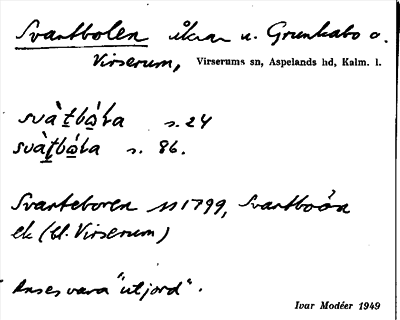 Svartbolen åkrar u. Grunkabo o.
Virserum, Virserums sn, Aspelands hd, Kalm. l.
s. 24
s. 86.
Svarteboren 1799, Svartboån
ek (bl. Virserum)
Anses vara "utjord".
Ivar Modéer 1949